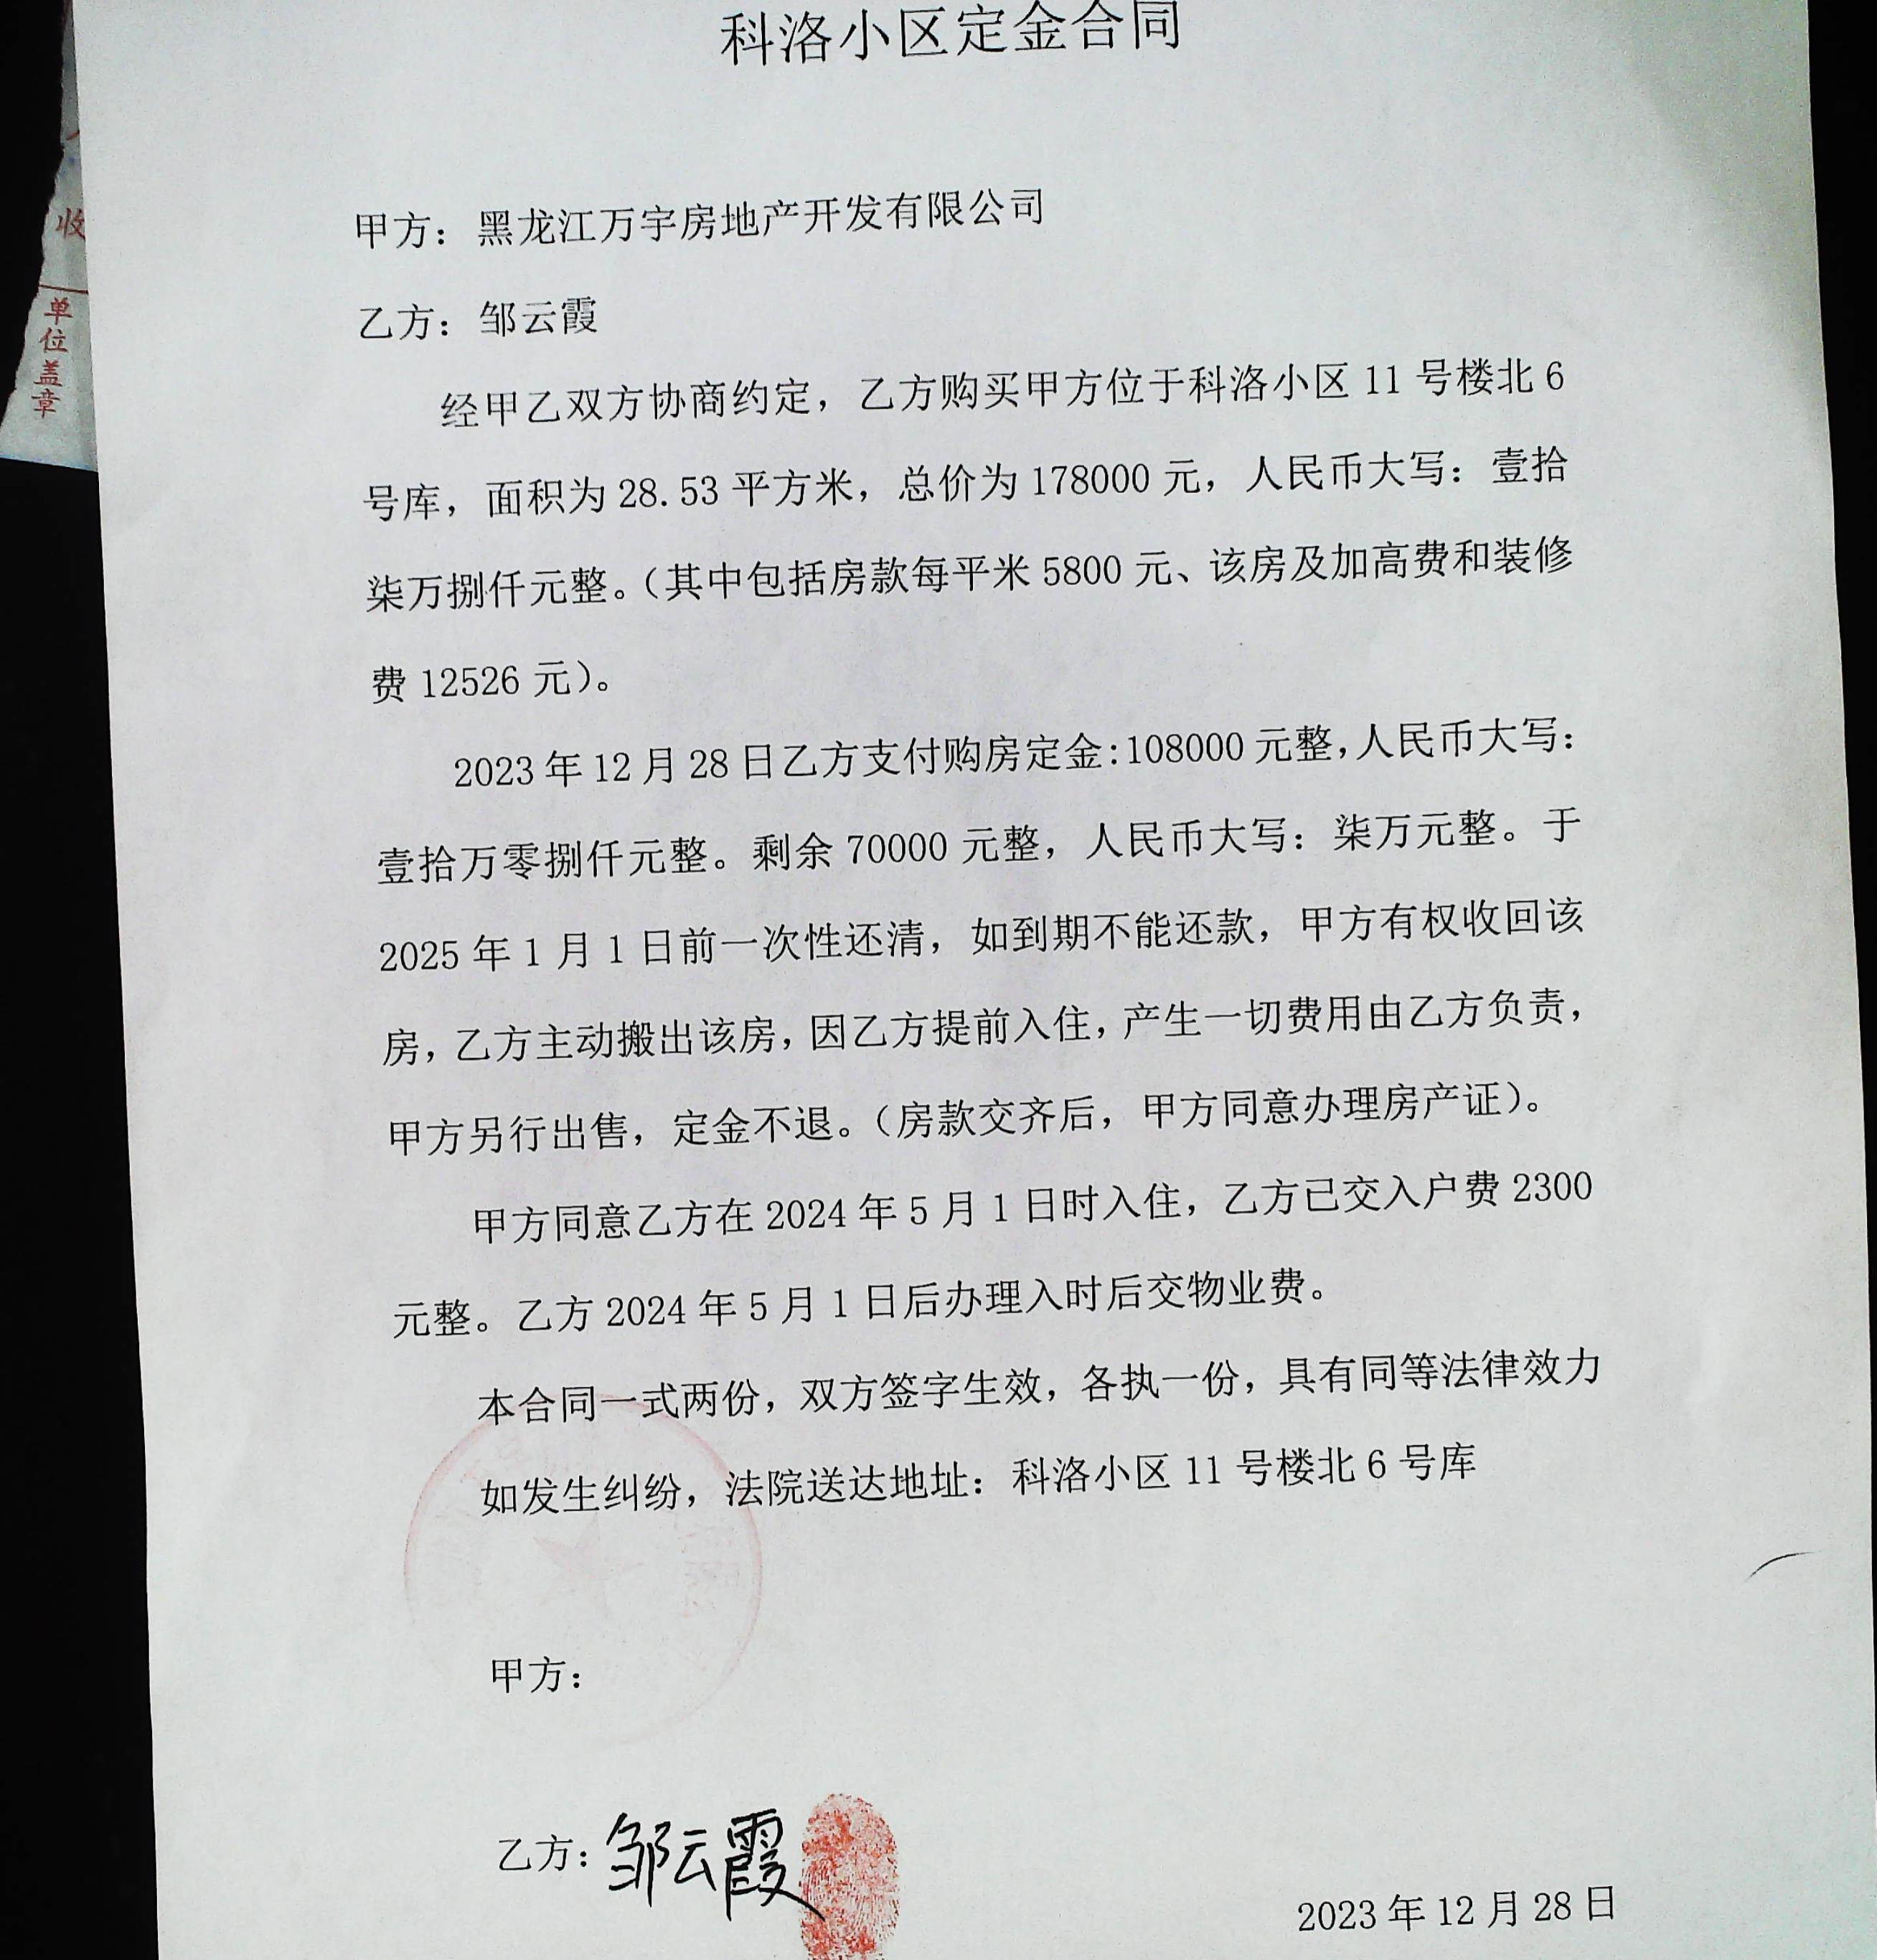 科洛小区定金合同
收
单位盖章
甲方：黑龙江万宇房地产开发有限公司
乙方：邹云霞
经甲乙双方协商约定，乙方购买甲方位于科洛小区 11 号楼北 6
号库，面积为 28.53 平方米，总价为 178000 元，人民币大写：壹拾
柒万捌仟元整。（其中包括房款每平米 5800 元、该房及加高费和装修
费 12526 元）。
2023 年 12 月 28 日乙方支付购房定金:108000 元整，人民币大写：
壹拾万零捌仟元整。剩余 70000 元整，人民币大写：柒万元整。于
2025 年 1 月 1 日前一次性还清，如到期不能还款，甲方有权收回该
房，乙方主动搬出该房，因乙方提前入住，产生一切费用由乙方负责，
甲方另行出售，定金不退。（房款交齐后，甲方同意办理房产证）。
甲方同意乙方在 2024 年 5 月 1 日时入住，乙方已交入户费 2300
元整。乙方 2024 年 5 月 1 日后办理入时后交物业费。
本合同一式两份，双方签字生效，各执一份，具有同等法律效力
如发生纠纷，法院送达地址：科洛小区 11 号楼北 6 号库
甲方：
乙方：邹云霞
2023 年 12 月 28 日